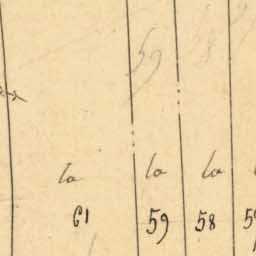 59 58
la la la
61 59 58